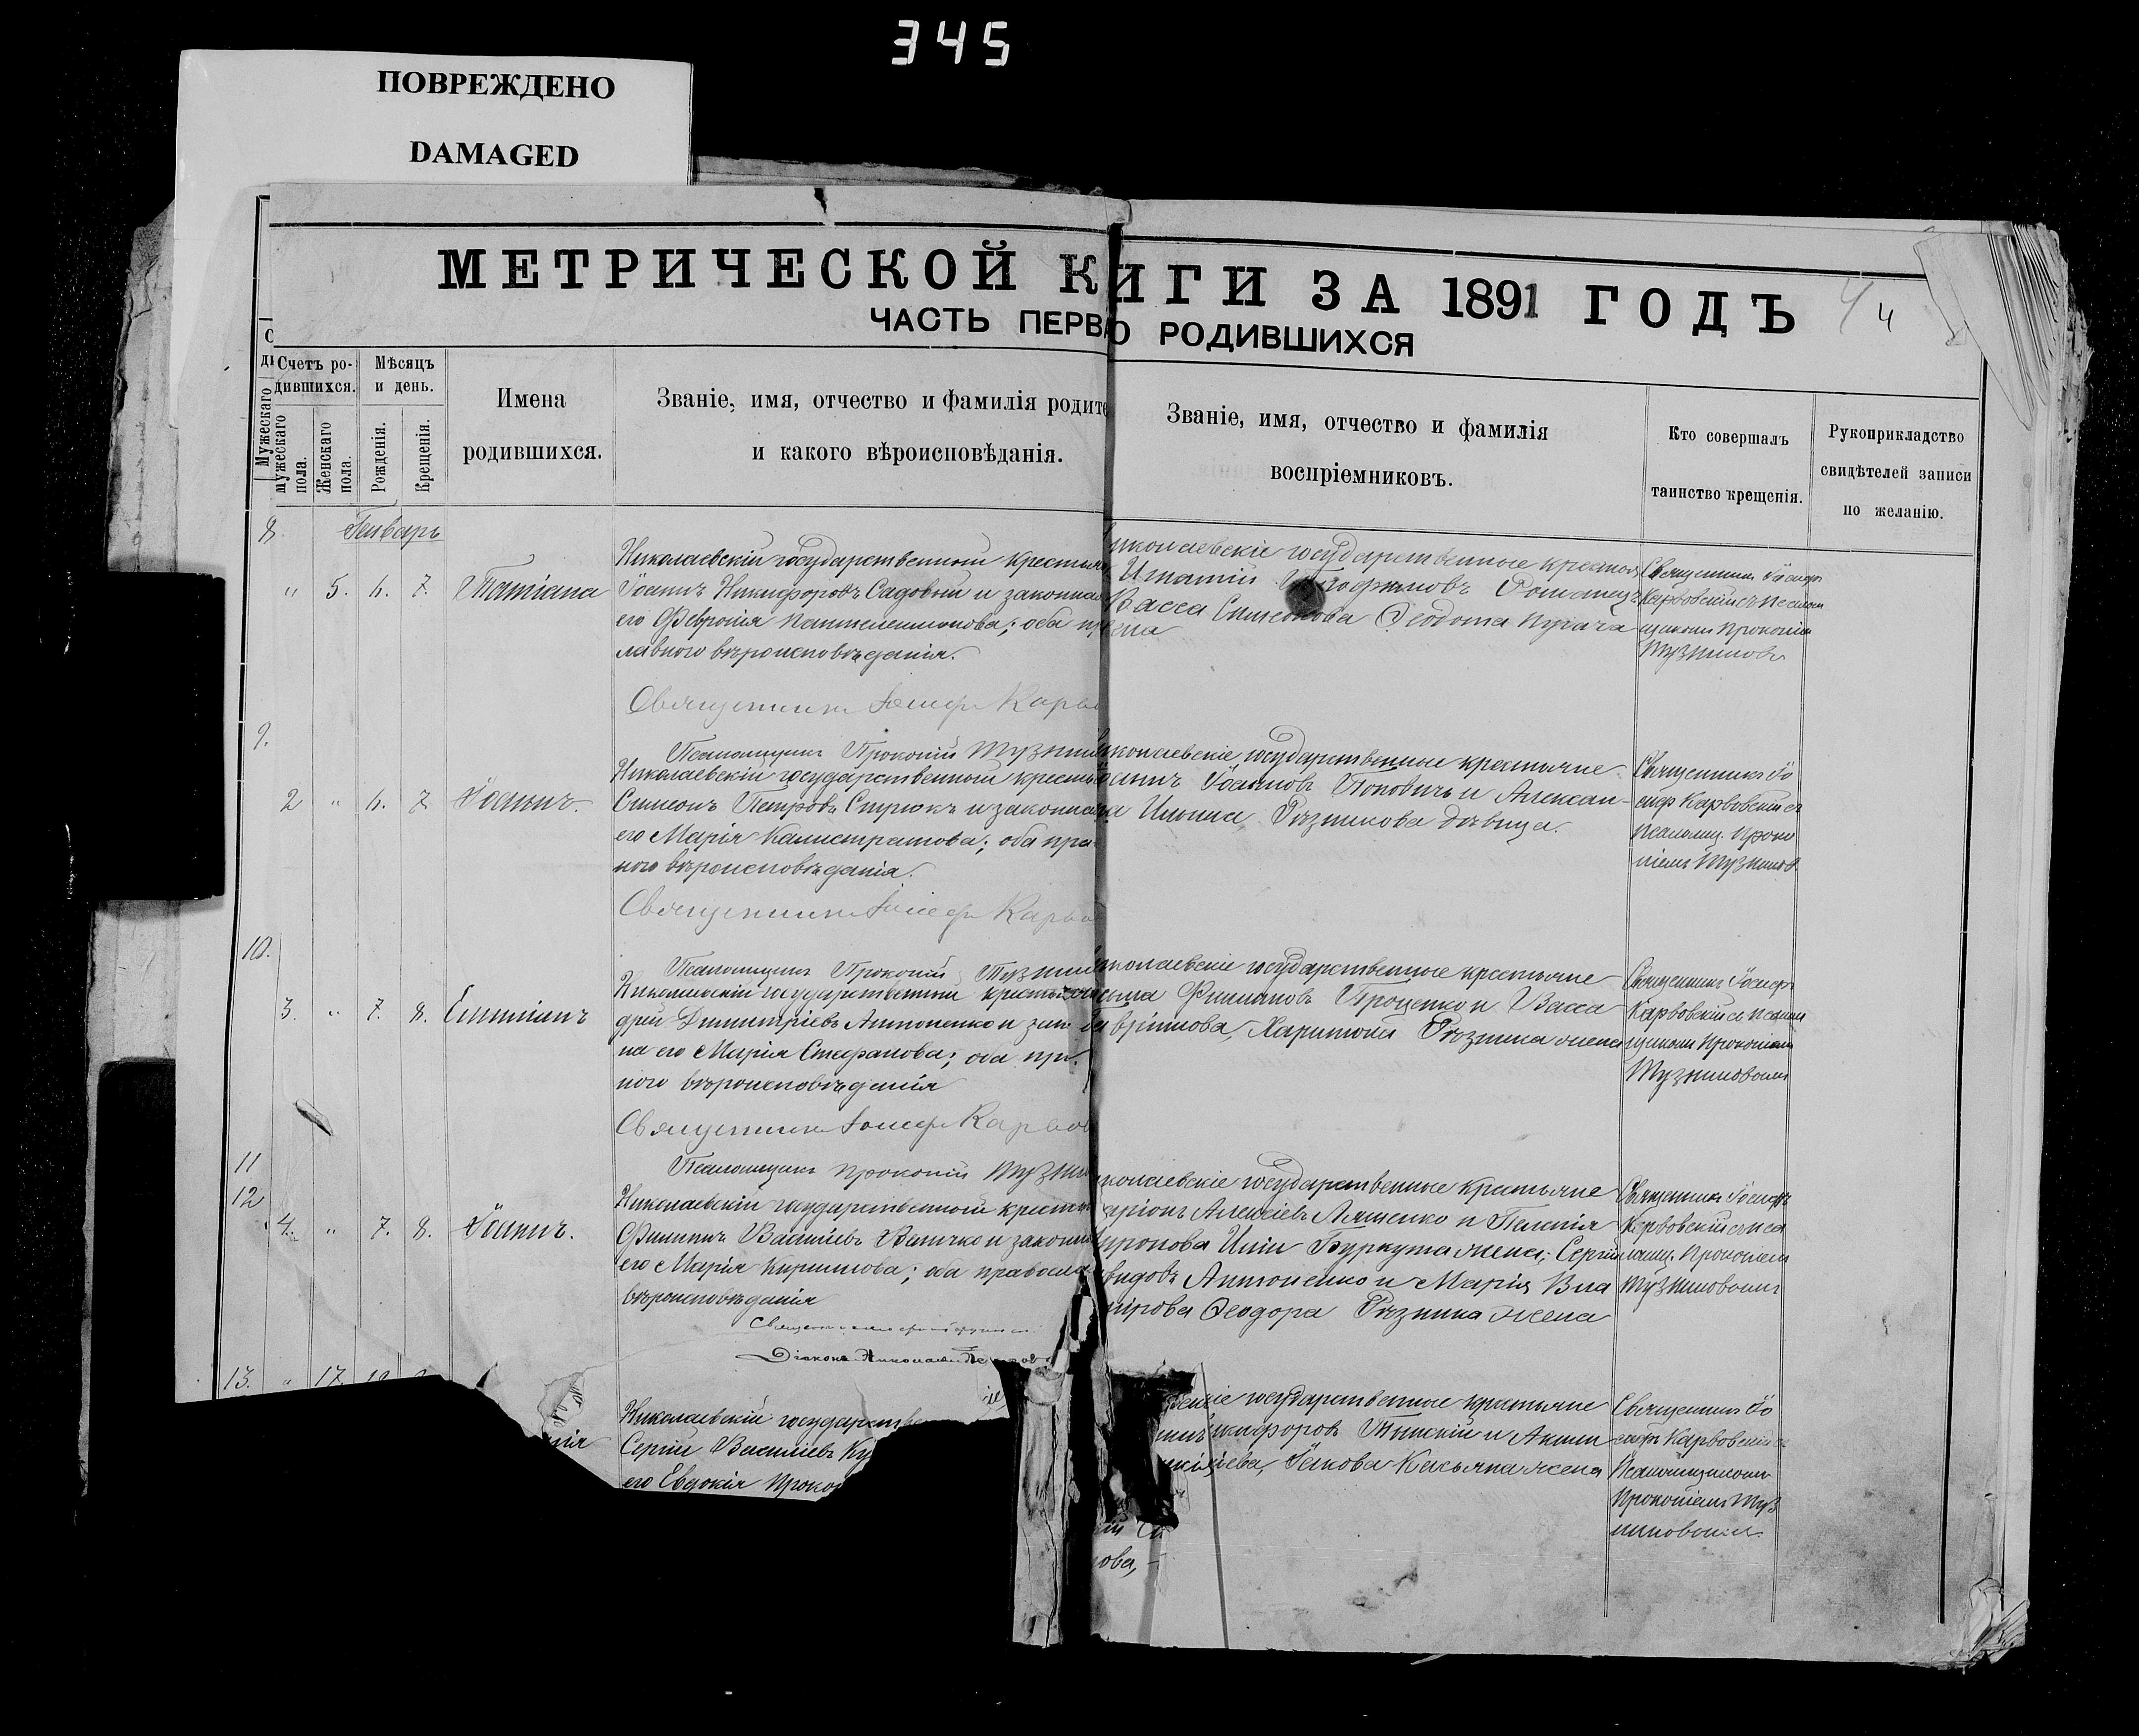 345
ПОВРЕЖДЕНО
DAMAGED
МЕТРИЧЕСКОЙ К ИГИ ЗА 1891 ГОДЪ
ЧАСТЬ ПЕРВ О РОДИВШИХСЯ
4
Счетъ ро-
дившихся.
Мѣсяцъ
и день.
Мужескаго
мужескаго
пола.
Женскаго
пола.
Рожденія.
Крещенія.
Имена
родившихся.
Званіе, имя, отчество и фамилія родите
и какого вѣроисповѣданія.
Званіе, имя, отчество и фамилія
воспріемниковъ.
Кто совершалъ
таинство крещенія.
Рукоприкладство
свидѣтелей записи
по желанію.
8.
Генварь
" 5. 6. 7. Татіана
Николаевскій государственный крестьян
Іоаннъ Никифоровъ Садовый и законная
его Февронія Пантелеимонова; оба пр
лавного вѣроисповѣданія.
Священникъ Іосифъ Карв
Псаломщикъ Прокопій Тузни
иколаевскіе государственные крестьян
Игнатій Романец
Васса Симеонова Ѳеодота Пугача
жена
Священникъ Іосифъ
Карвовскій съ псалом
щикомъ Прокопіем
Тузниковы
9.
2 " 6. 7. Іоаннъ.
Николаевскій государственный крестья
Симеонъ Петровъ Стрюкъ и законная
его Марія Калистратова; оба пра
ного вѣроисповѣданія.
Священникъ Іосифъ Карвов
Псаломщикъ Прокопій Тузни
иколаевскіе государственные крестьяне
оаннъ Іоанновъ Поповичъ и Алексан-
ра Ильина Рѣзникова дѣвица.
Священникъ Іо
сифъ Карвовскій съ
псаломщ. Проко
піемъ Тузников
10.
3. " 7. 8. Емиліанъ
Николаевскій государственный крестья
дрей Димитріевъ Антоненко и закон
на его Марія Стефанова; оба пр
ного вѣроисповѣданія
Священникъ Іосифъ Карвов
Псаломщикъ Прокопій Тузни
иколаевскіе государственные крестьяне
Филиповъ Проценко и Васса
Гавріилова, Харитона Рѣзника жена
Священникъ Іосифъ
Карвовскій съ псалом
щикомъ Прокопіемъ
Тузниковымъ
11
12
4. " 7. 8. Іоаннъ.
Николаевскій государственный крестья
Филиппъ Василіевъ Величко и законная
его Марія Кирилова; оба правосла
вѣроисповѣданія
Діаконъ Николай
колаевскіе государственные крестьяне
аріонъ Алексіевъ Ляшенко и Пелагія
Миронова Иліи Буркута жена; Сергій
видовъ Антоненко и Марія Вла
мірова Ѳеодора Рѣзника жена
Священникъ Іосифъ
Карвовскій съ пса
ломщ. Прокопіем
Тузниковымъ
13. " 17.
Николаевскій государстве
Сергій Василіевъ Ку
его Евдокія Проко
вскіе государственные крестьяне
икифоровъ Тынскій и Акили
іева, Іакова Касьяна жена
Священникъ Іо
сифъ Карвовскій съ
Псаломщикомъ
Прокопіемъ Туз
никовымъ.
ова,